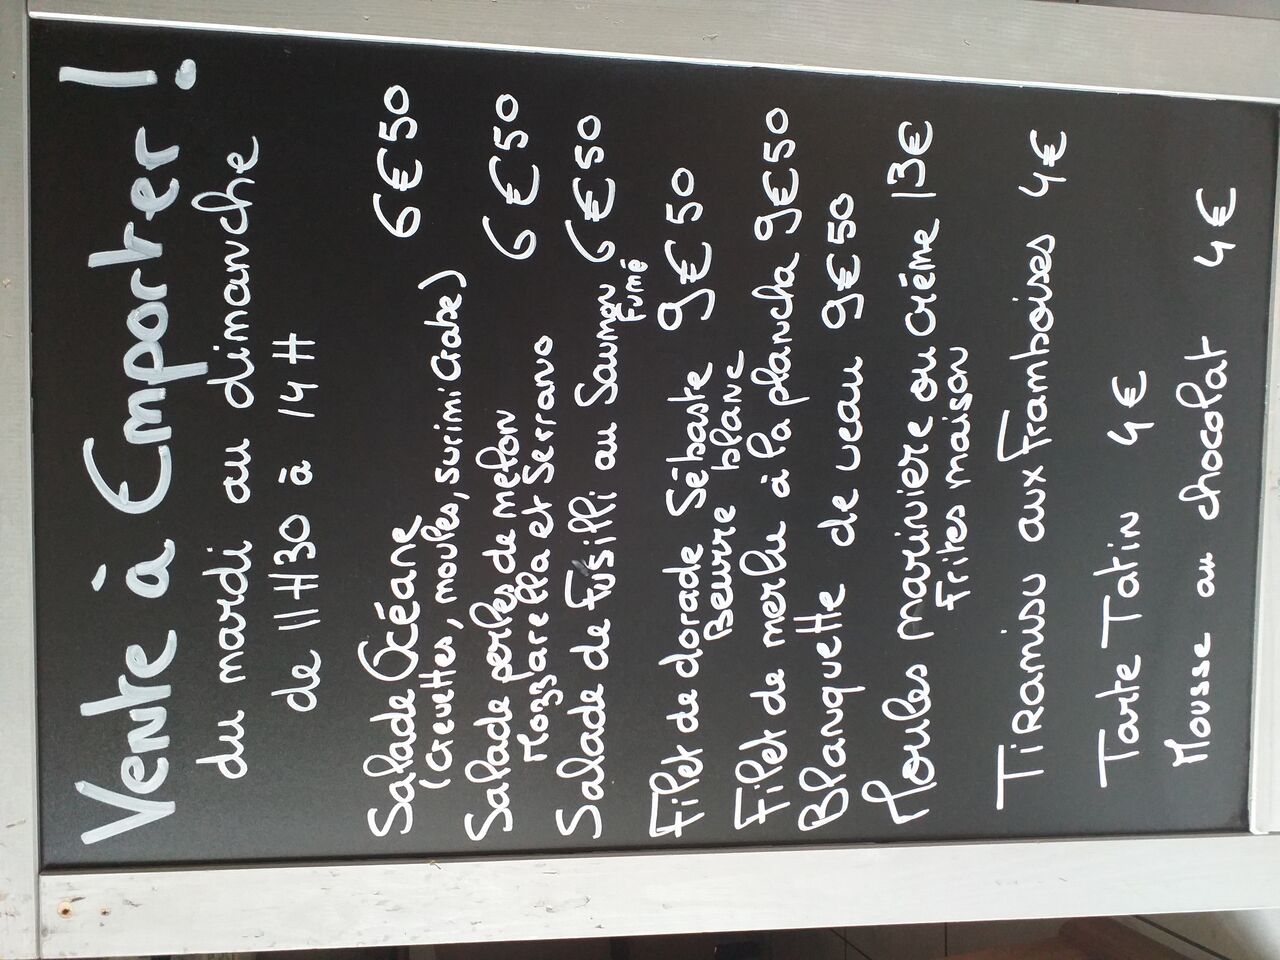 Vente à Emporter !
du mardi au dimanche
de 11H30 à 14H
Salade Océane 6€50
(Crevettes, moules, surimi Crabe)
Salade perles de melon
Mozzarella et Serrano 6€50
Salade de Fusilli au Saumon 6€50
Fumé
Filet de dorade Sébaste 9€50
Beurre blanc
Filet de merlu à la plancha 9€50
Blanquette de veau 9€50
Moules marinière ou Crème 13€
Frites maison
Tiramisu aux Framboises 4€
Tarte Tatin 4€
Mousse au chocolat 4€